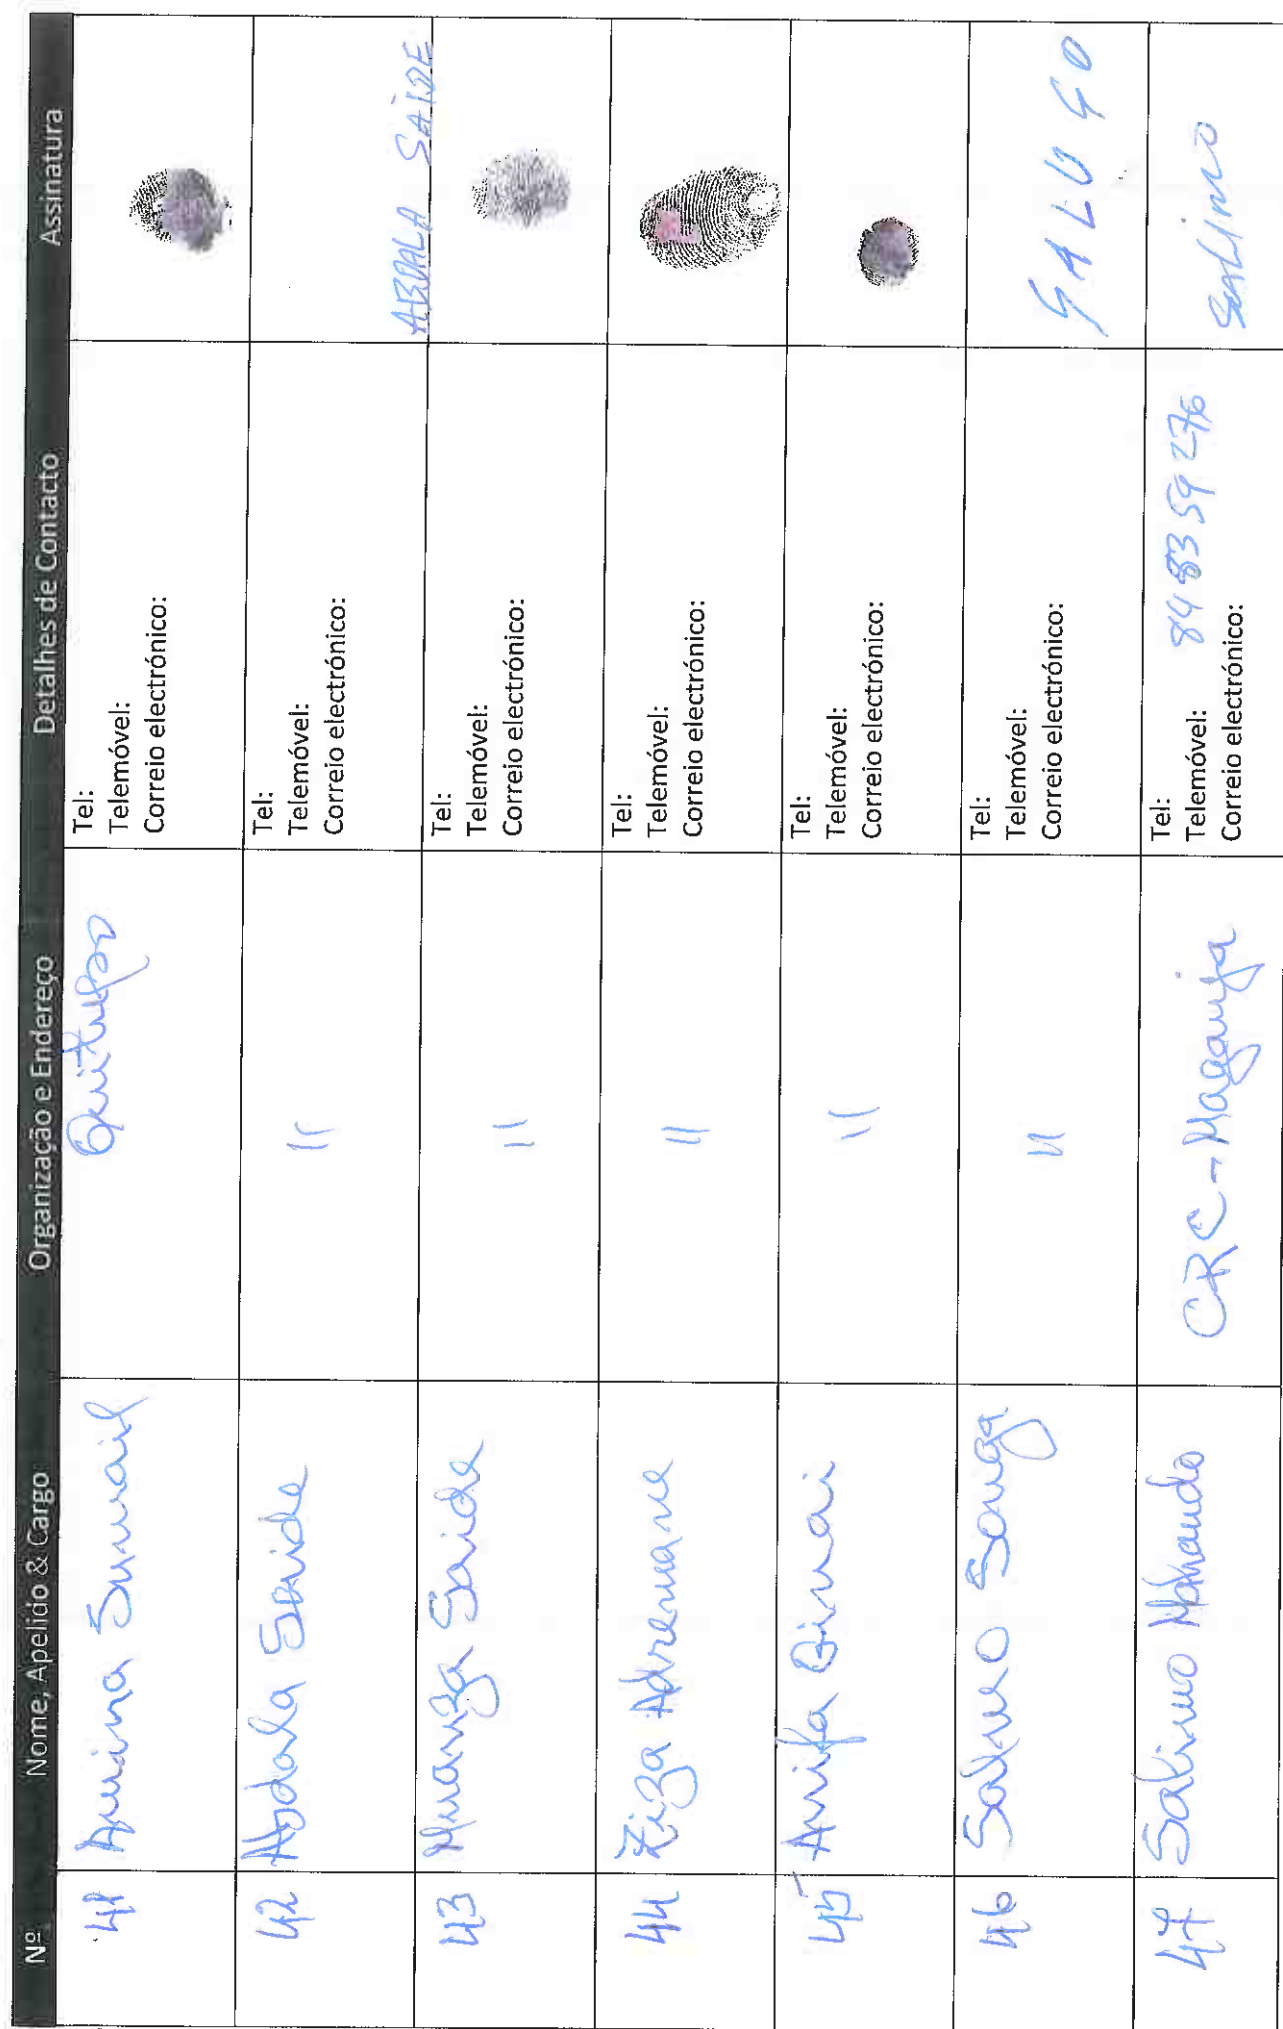 Nº Nome, Apelido & Cargo Organização e Endereço Detalhes de Contacto Assinatura
41 Amina Sumail Quitupo
Tel:
Telemóvel:
Correio electrónico:
42 Abdala Saide 11
Tel:
Telemóvel:
Correio electrónico:
ABDALA SAIDE
43 Muanza Saide 11
Tel:
Telemóvel:
Correio electrónico:
44 Ziza Adremane 11
Tel:
Telemóvel:
Correio electrónico:
45 Arrifa Dinai 11
Tel:
Telemóvel:
Correio electrónico:
46 Salimo Songa 11
Tel:
Telemóvel:
Correio electrónico:
47 Salimo CRC-Maganja
Tel:
Telemóvel: 848359276
Correio electrónico:
Salimo